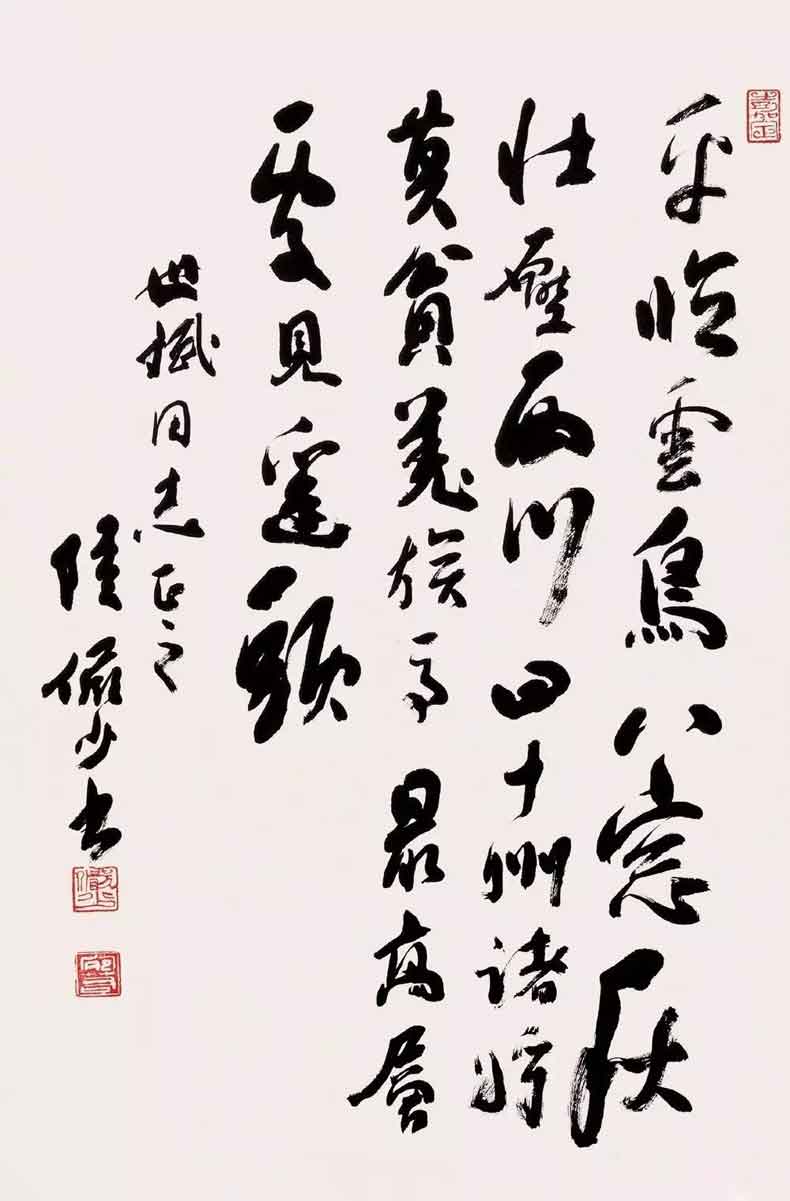 平臨雲鳥八窗秋
壯壓西川四十州諸將
莫貪羌族馬最高層
處見邊頭
世 同志正之
陸儼少書